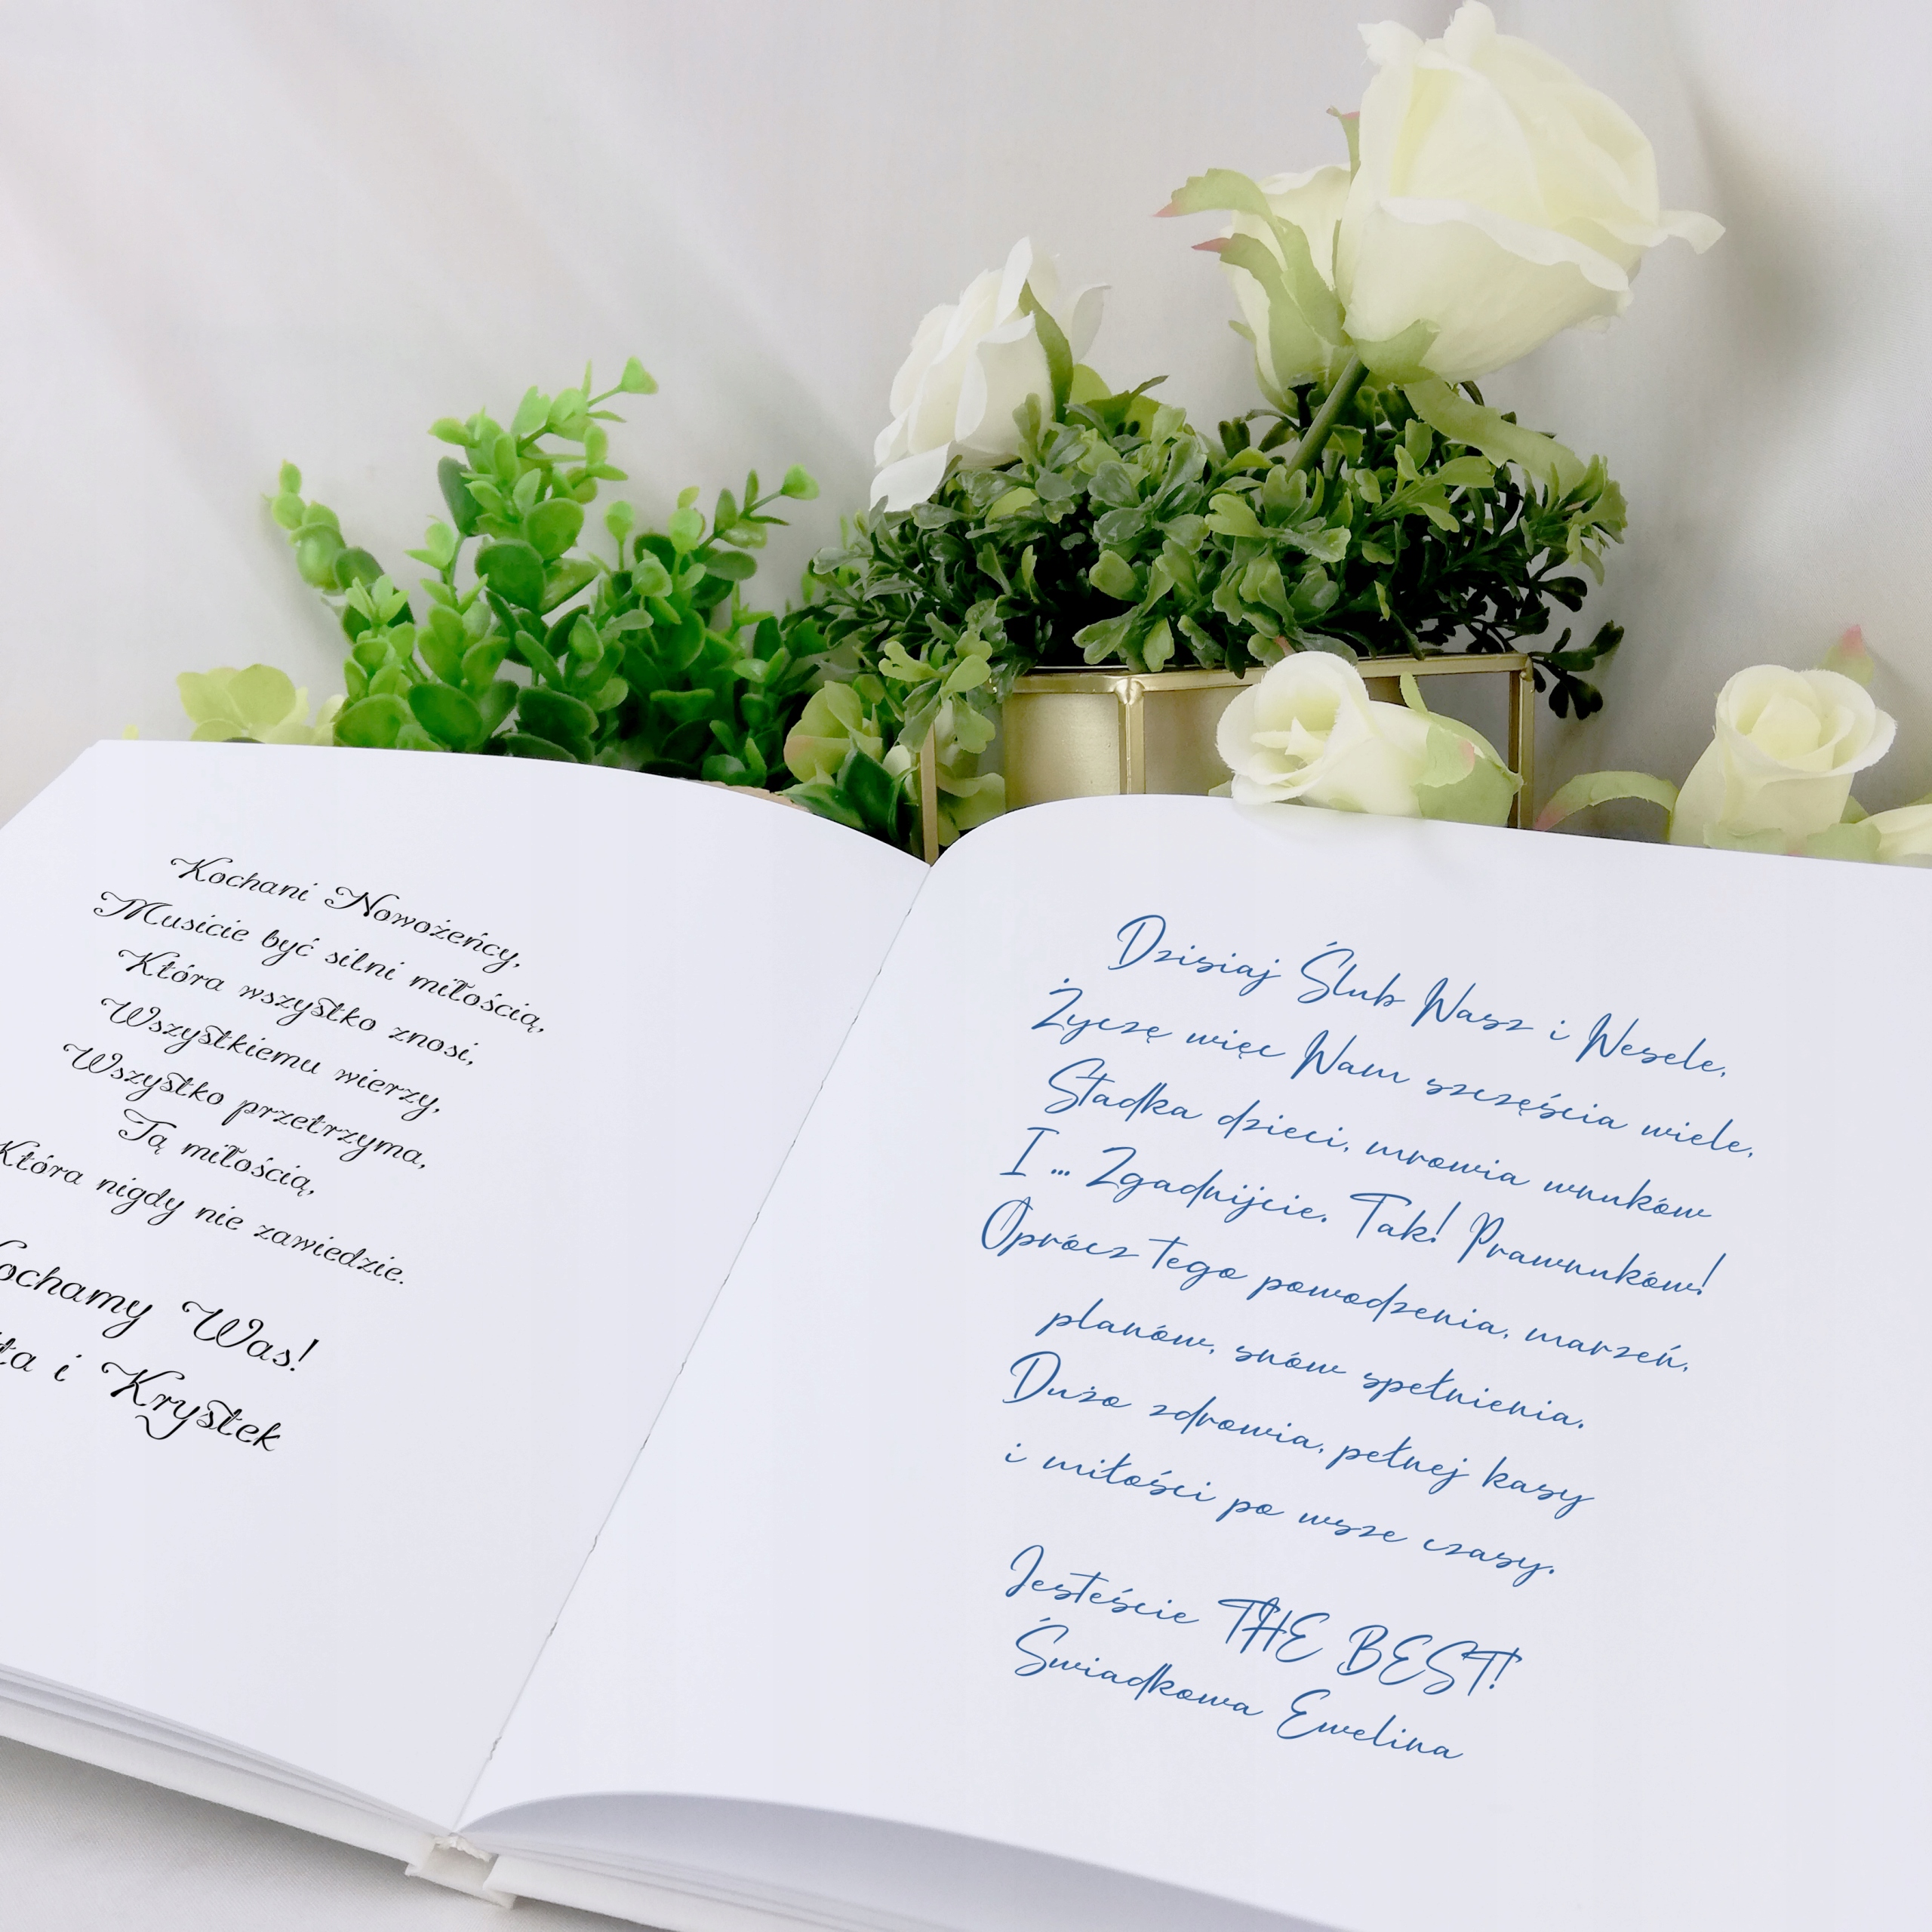 Kochani Nowożeńcy,
Musicie być silni miłością,
Która wszystko znosi,
Wszystkiemu wierzy,
Wszystko przetrzyma,
Tą miłością,
Która nigdy nie zawiedzie.
Kochamy Was!
i Krystek
Dzisiaj Ślub Wasz i Wesele,
Życzę więc Wam szczęścia wiele,
Stadka dzieci, mrowia wnuków
I ... Zgadnijcie. Tak! Prawnuków!
Oprócz tego powodzenia, marzeń,
planów, snów spełnienia.
Dużo zdrowia, pełnej kasy
i miłości po wsze czasy.
Jesteście THE BEST!
Świadkowa Ewelina